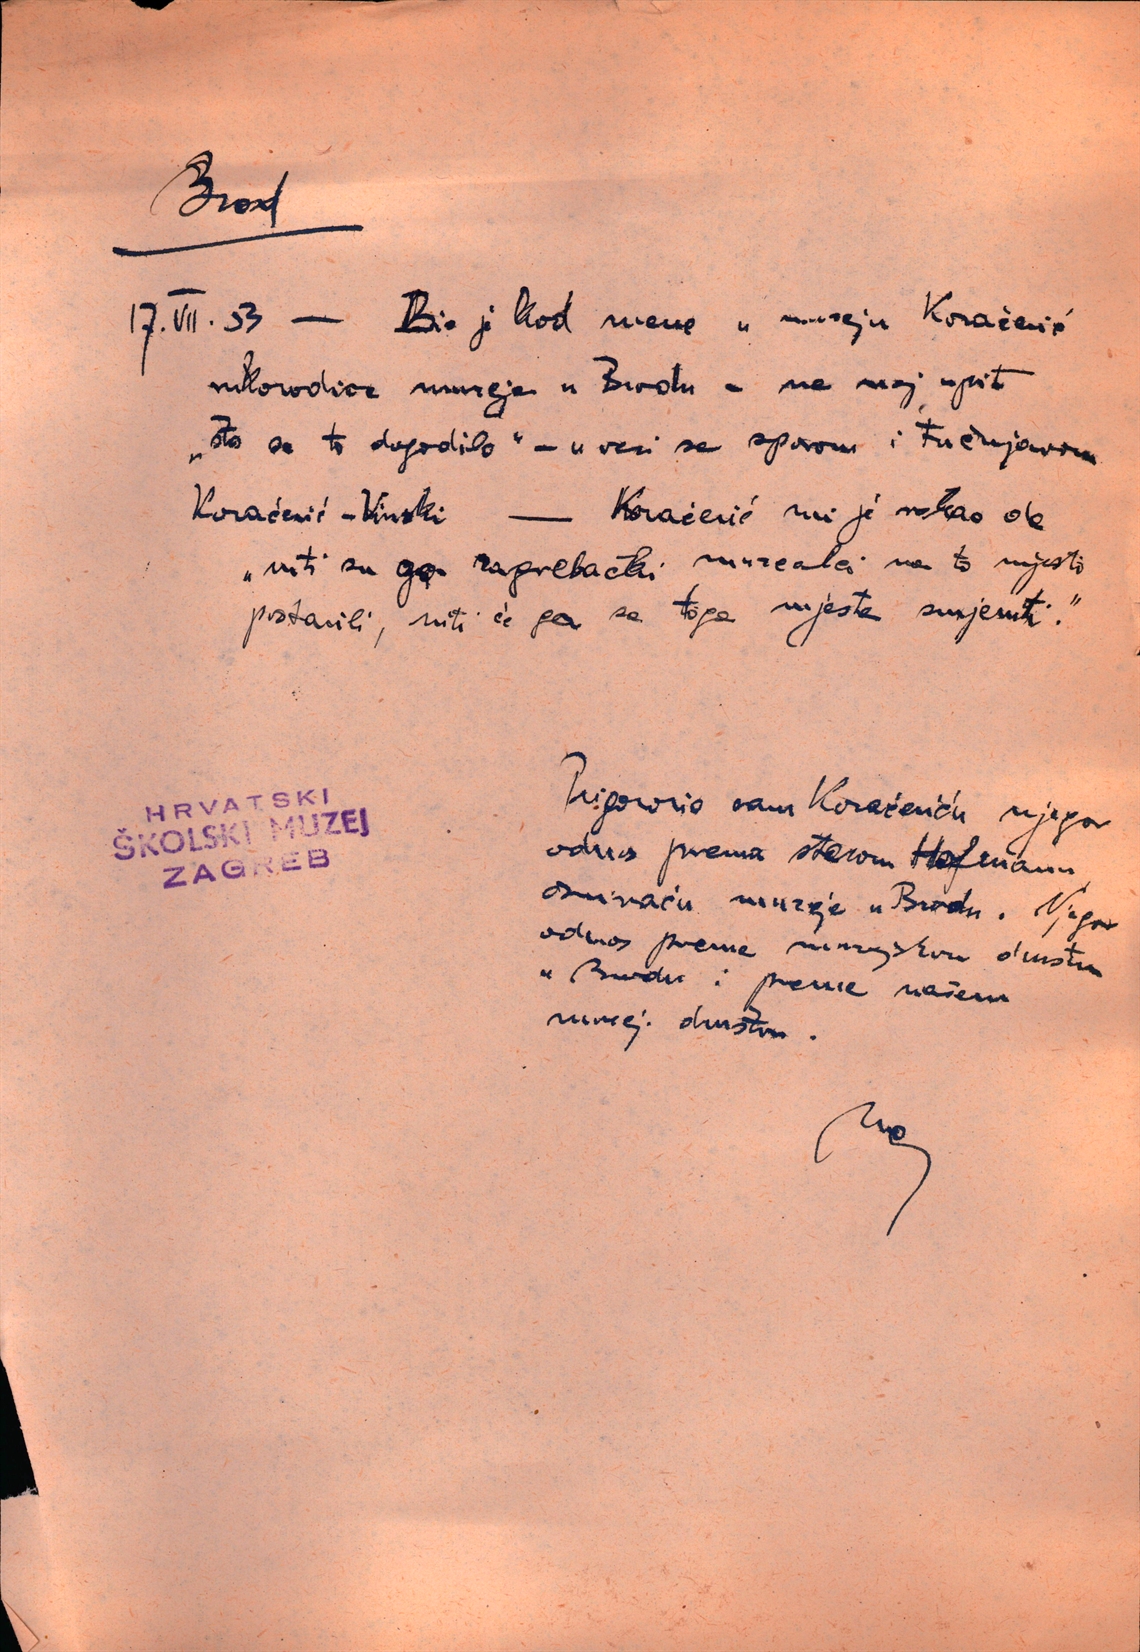 Brod
17.VII.53 — Bio je kod mene u muzeju Koračević
rukovodioc muzeja u Brodu – na moj upit
„što se to dogodilo“ – u vezi sa sporom i
Koračević – Vinski — Koračević mi je rekao da
„niti su ga zagrebački muzealci na to mjesto
postavili, niti će ga sa toga mjesta smjeniti.“
HRVATSKI
ŠKOLSKI MUZEJ
ZAGREB
Prigovorio sam Koračeviću njegov
odnos prema starom Hofmanu
osnivaču muzeja u Brodu. Njegov
odnos prema muzejskom društvu
u Brodu i prema našem
muzej. društvu.